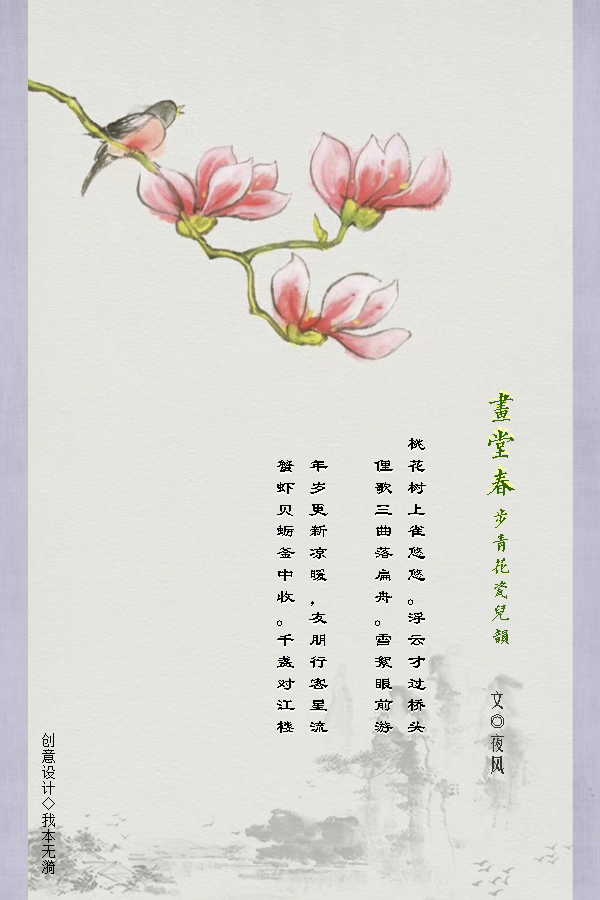 畫堂春 步青花瓷兒韻
文◎夜风
桃花树上雀悠悠。浮云才过桥头
俚歌三曲落扁舟。雪絮眼前游
年岁更新凉暖，友朋行客星流
蟹虾贝蛎釜中收。千盏对江楼
创意设计◇我本无漪